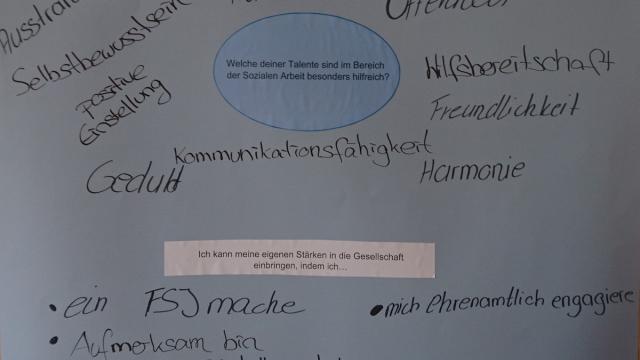 Selbstbewusstsein
Welche deiner Talente sind im Bereich
der Sozialen Arbeit besonders hilfreich?
Hilfsbereitschaft
Positive
Einstellung
Freundlichkeit
Kommunikationsfähigkeit
Geduld
Harmonie
Ich kann meine eigenen Stärken in die Gesellschaft
einbringen, indem ich...
• ein FSJ mache
• mich ehrenamtlich engagiere
• Aufmerksam bin